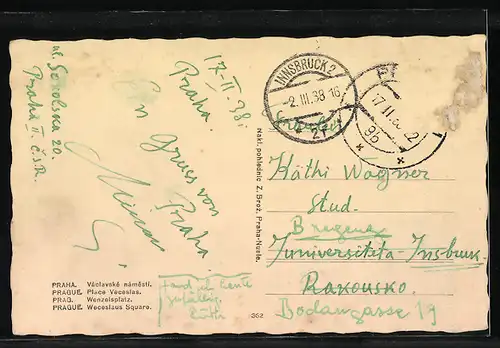 17-II. 38.
Praha.
Ein Gruss von
Praha
ul. Sokolska 20.
Praha II. Č.S.R.
PRAHA. Václavské náměstí.
PRAGUE. Place Véceslas.
PRAG. Wenzelsplatz.
PRAGUE. Weceslaus Square.
fand ich heute
zufällig
Käthe
Nakl. pohlednic Z. Brož, Praha-Nusle.
362
INNSBRUCK 2
-2. III. 38 16
* 2f *
17 II
9b
Käthi Wagner
Stud.
Bregenz
Universitita-Insbruk
Rakousko.
Bodangasse 19